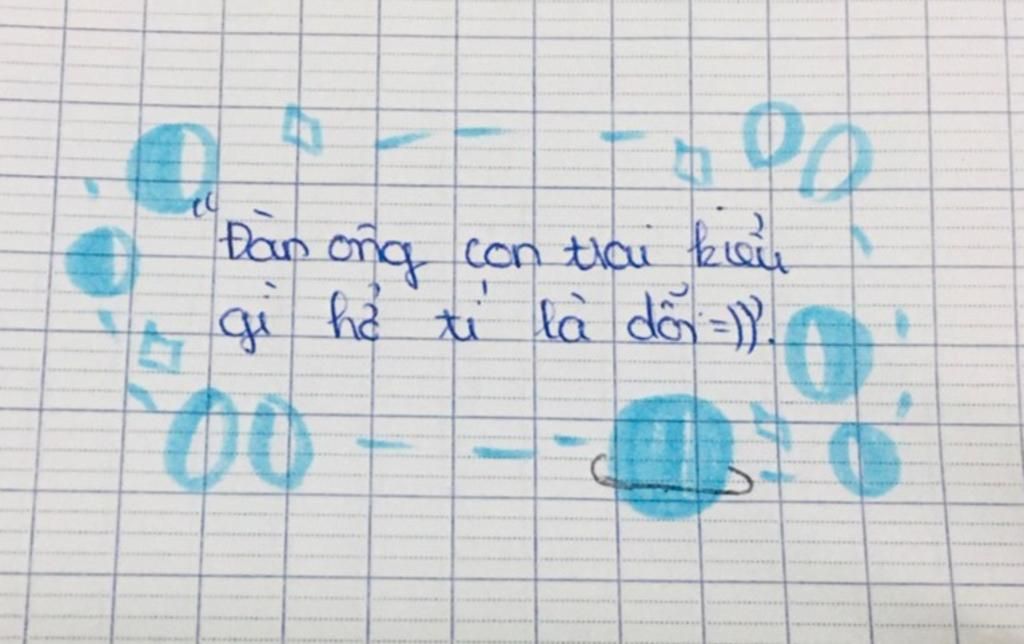 "Đàn ông con trai kiểu
gì hở tí là dỗi =)))".